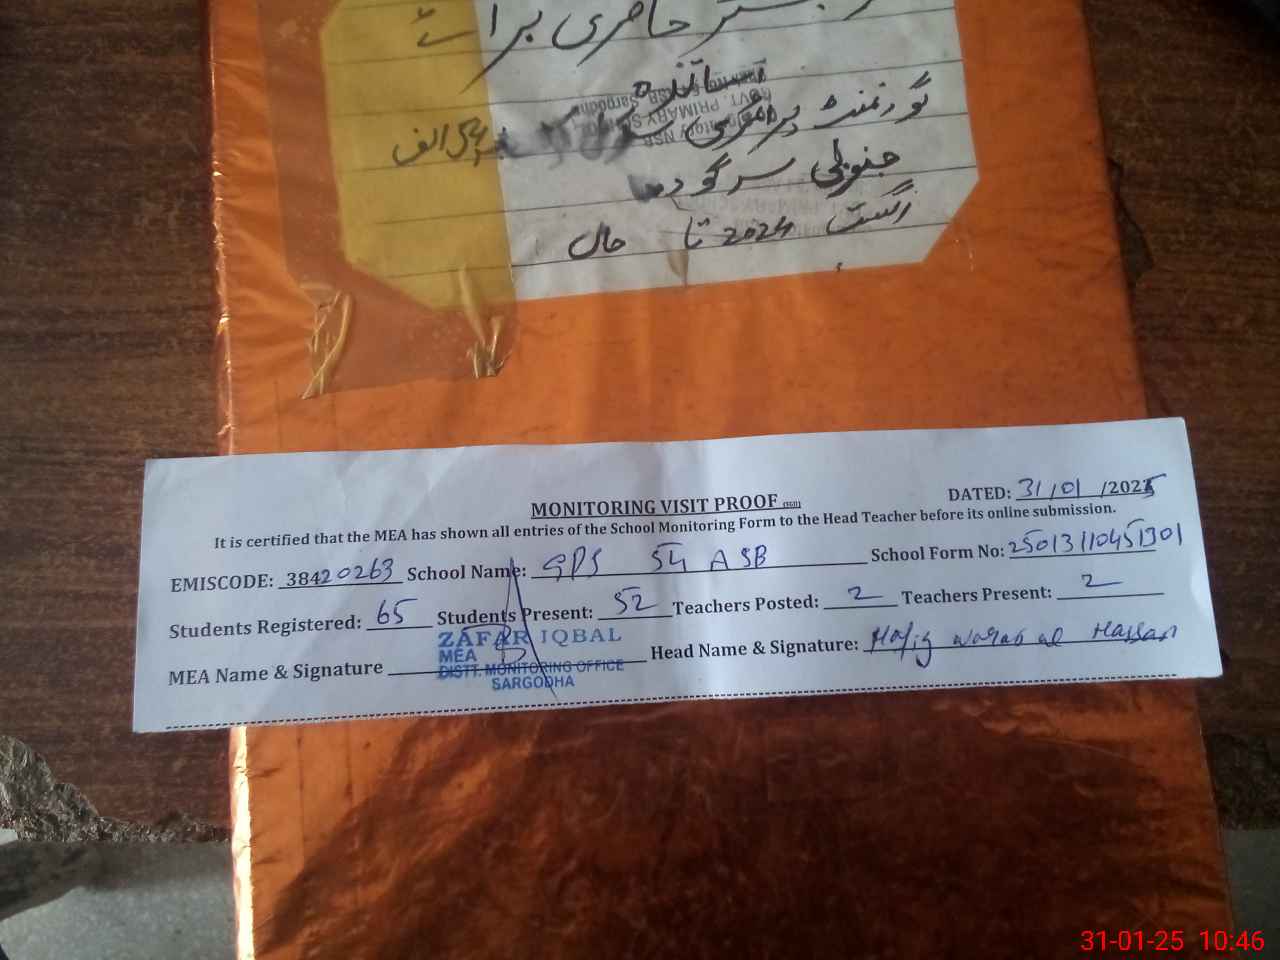 رجسٹر حاضری برائے
اساتذہ
گورنمنٹ پرائمری سکول 54 الف
جنوبی سرگودھا
اگست 2024 تا حال
MONITORING VISIT PROOF (SGD)
DATED: 31/01/2025
It is certified that the MEA has shown all entries of the School Monitoring Form to the Head Teacher before its online submission.
EMISCODE: 38420263 School Name: GPS 54 A SB School Form No: 25013110451301
Students Registered: 65 Students Present: 52 Teachers Posted: 2 Teachers Present: 2
MEA Name & Signature Head Name & Signature: Hafiz Hassan
ZAFAR IQBAL
MEA
DISTT. MONITORING OFFICE
SARGODHA
31-01-25 10:46